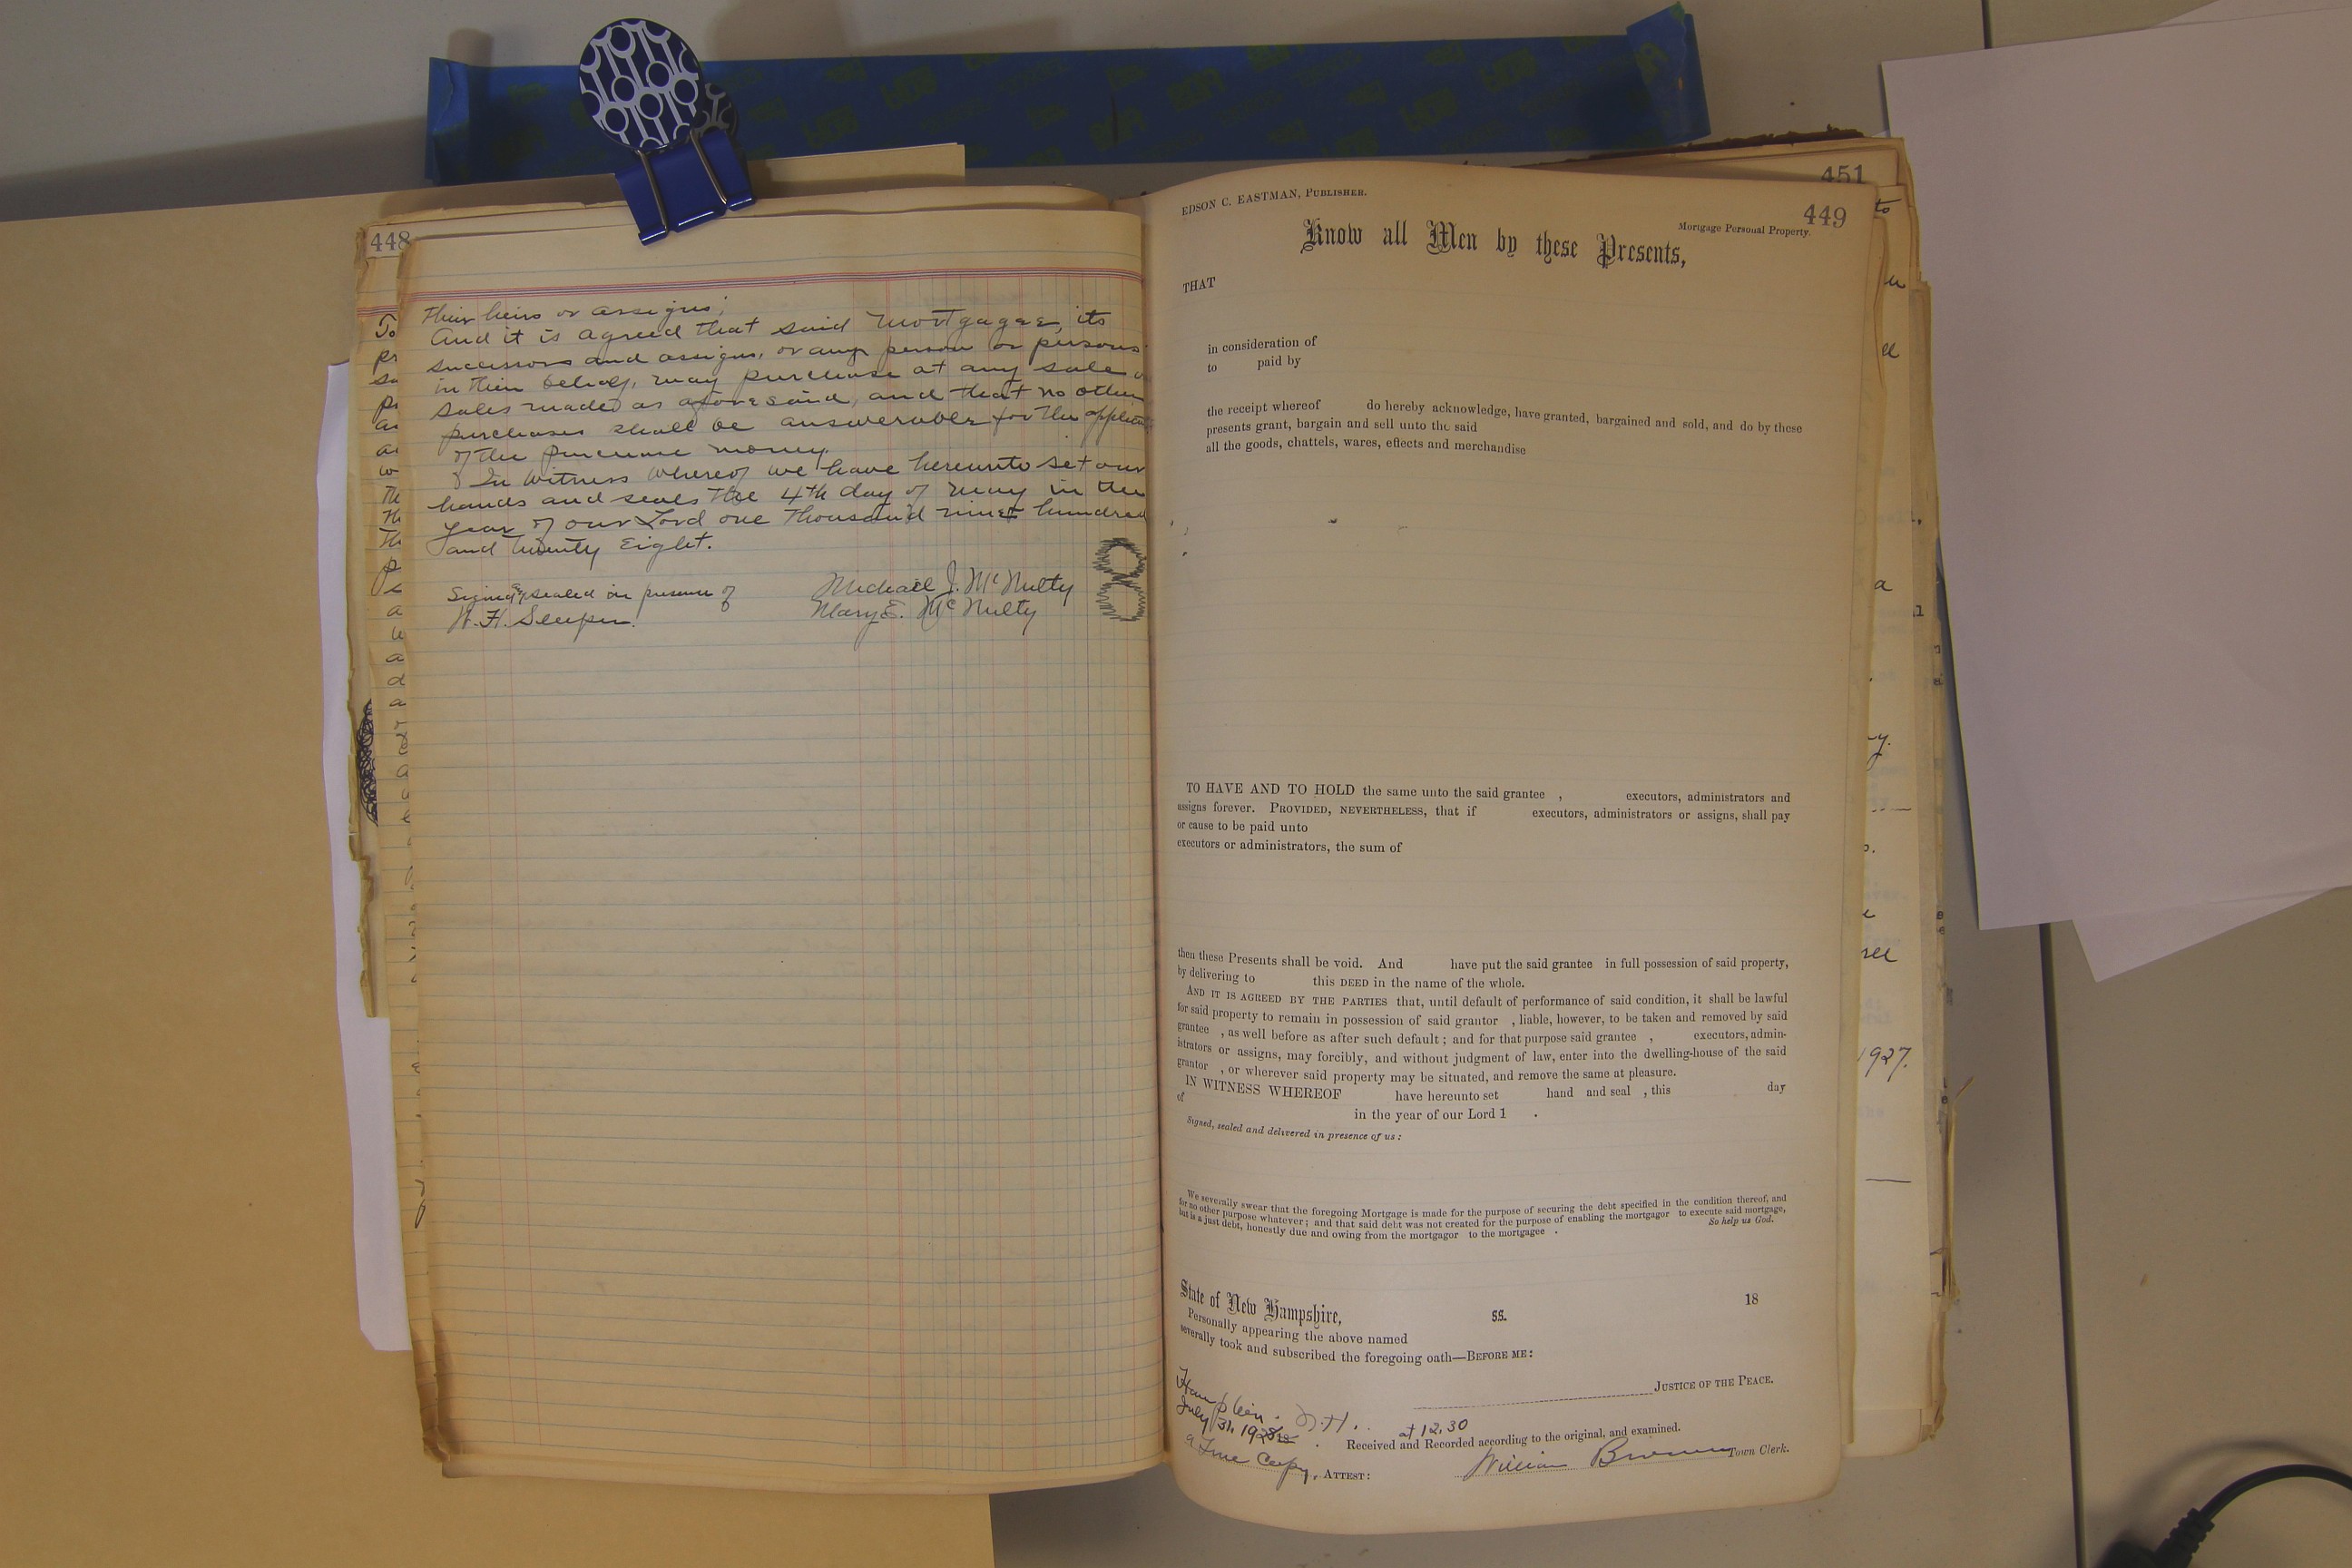 448
their heirs or assigns;
And it is agreed that said Mortgagee, its
successors and assigns, or any person or persons
in their behalf, may purchase at any sale or
sales made as aforesaid, and that no other
purchaser shall be answerable for the
of the purchase money.
In Witness Whereof we have hereunto set our
hands and seals the 4th day of May in the
year of our Lord one thousand nine hundred
and twenty Eight.
Signed & sealed in presence of
W. H. Sleeper.
Michael J. McNulty
Mary E. McNulty
451
EDSON C. EASTMAN, PUBLISHER.
449
Mortgage Personal Property.
Know all Men by these Presents,
THAT
in consideration of
to paid by
the receipt whereof do hereby acknowledge, have granted, bargained and sold, and do by these
presents grant, bargain and sell unto the said
all the goods, chattels, wares, effects and merchandise
TO HAVE AND TO HOLD the same unto the said grantee , executors, administrators and
assigns forever. PROVIDED, NEVERTHELESS, that if executors, administrators or assigns, shall pay
or cause to be paid unto
executors or administrators, the sum of
then these Presents shall be void. And have put the said grantee in full possession of said property,
by delivering to this DEED in the name of the whole.
AND IT IS AGREED BY THE PARTIES that, until default of performance of said condition, it shall be lawful
for said property to remain in possession of said grantor , liable, however, to be taken and removed by said
grantee , as well before as after such default ; and for that purpose said grantee , executors, admin-
istrators or assigns, may forcibly, and without judgment of law, enter into the dwelling-house of the said
grantor , or wherever said property may be situated, and remove the same at pleasure.
IN WITNESS WHEREOF have hereunto set hand and seal , this day
of in the year of our Lord 1 .
Signed, sealed and delivered in presence of us :
We severally swear that the foregoing Mortgage is made for the purpose of securing the debt specified in the condition thereof, and
for no other purpose whatever ; and that said debt was not created for the purpose of enabling the mortgagor to execute said mortgage,
but is a just debt, honestly due and owing from the mortgagor to the mortgagee . So help us God.
State of New Hampshire, ss. 18
Personally appearing the above named
severally took and subscribed the foregoing oath—BEFORE ME:
JUSTICE OF THE PEACE.
N.H.
July 31, 1928 at 12.30
Received and Recorded according to the original, and examined.
a True Copy, ATTEST: William Brown Town Clerk.
1927.